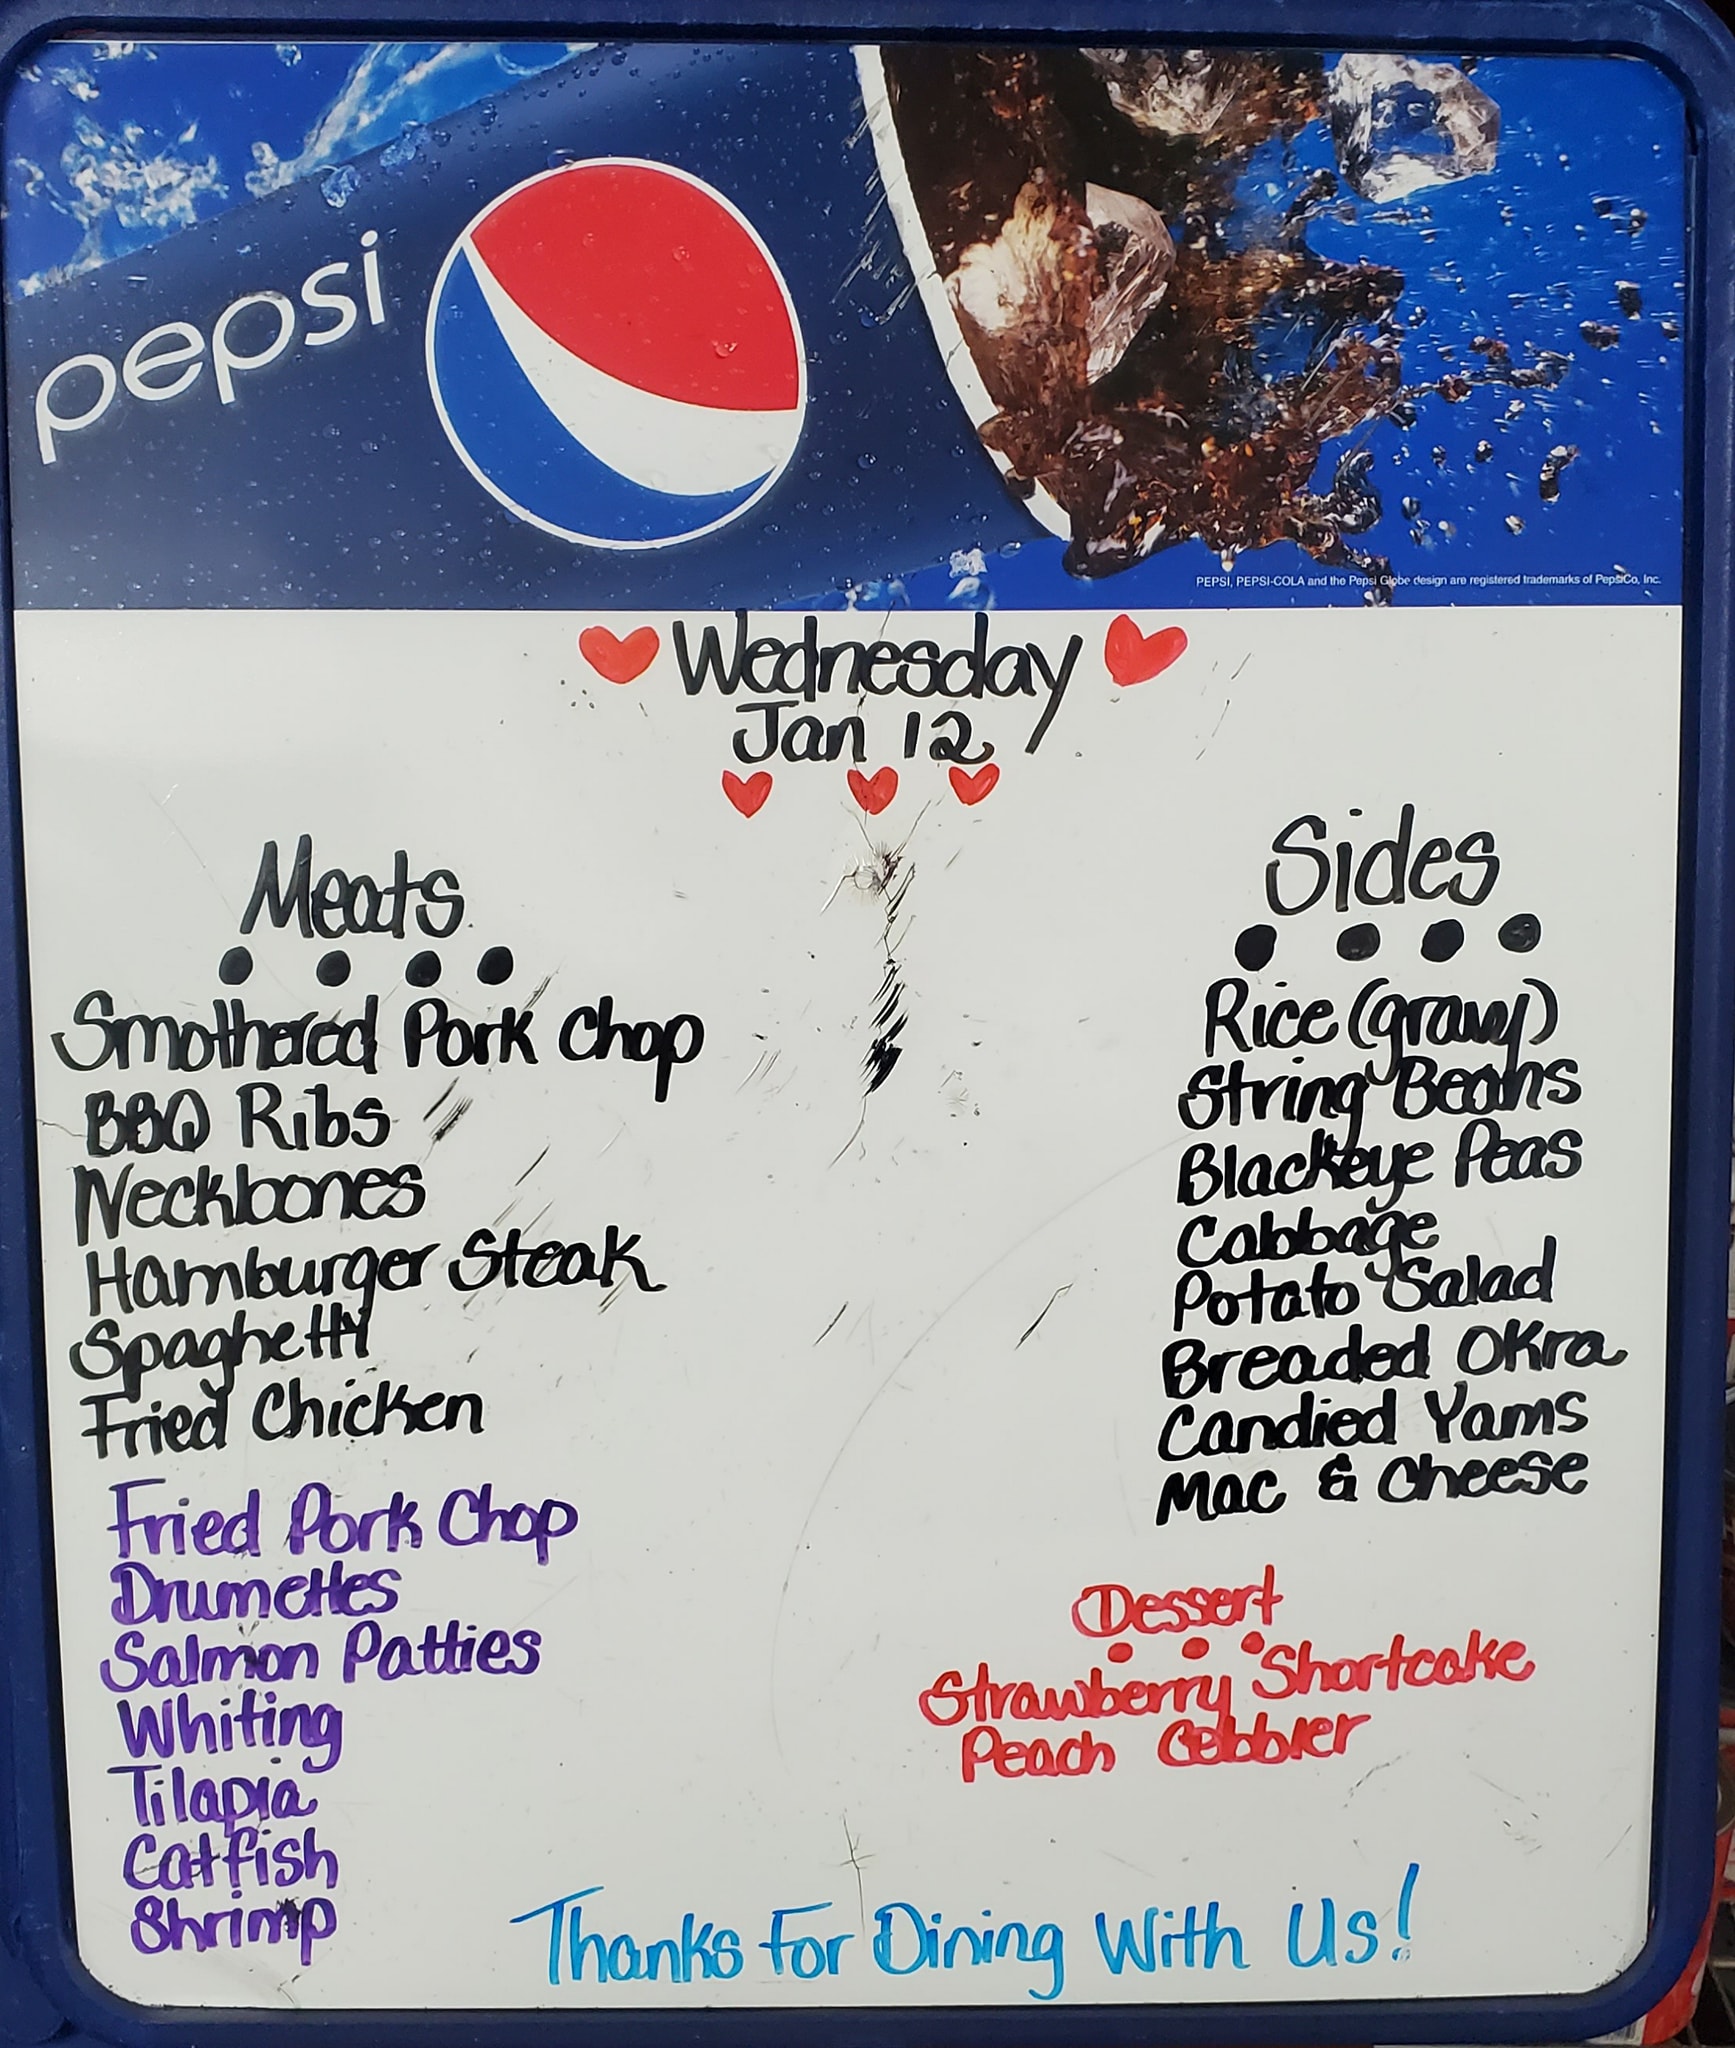 pepsi
PEPSI, PEPSI-COLA and the Pepsi Globe design are registered trademarks of PepsiCo, Inc.
Wednesday
Jan 12
Meats
Smothered Pork Chop
BBQ Ribs
Neckbones
Hamburger Steak
Spaghetti
Fried Chicken
Fried Pork Chop
Drumettes
Salmon Patties
Whiting
Tilapia
Catfish
Shrimp
Sides
Rice (gravy)
String Beans
Blackeye Peas
Cabbage
Potato Salad
Breaded Okra
Candied Yams
Mac & Cheese
Dessert
Strawberry Shortcake
Peach Cobbler
Thanks For Dining With Us!